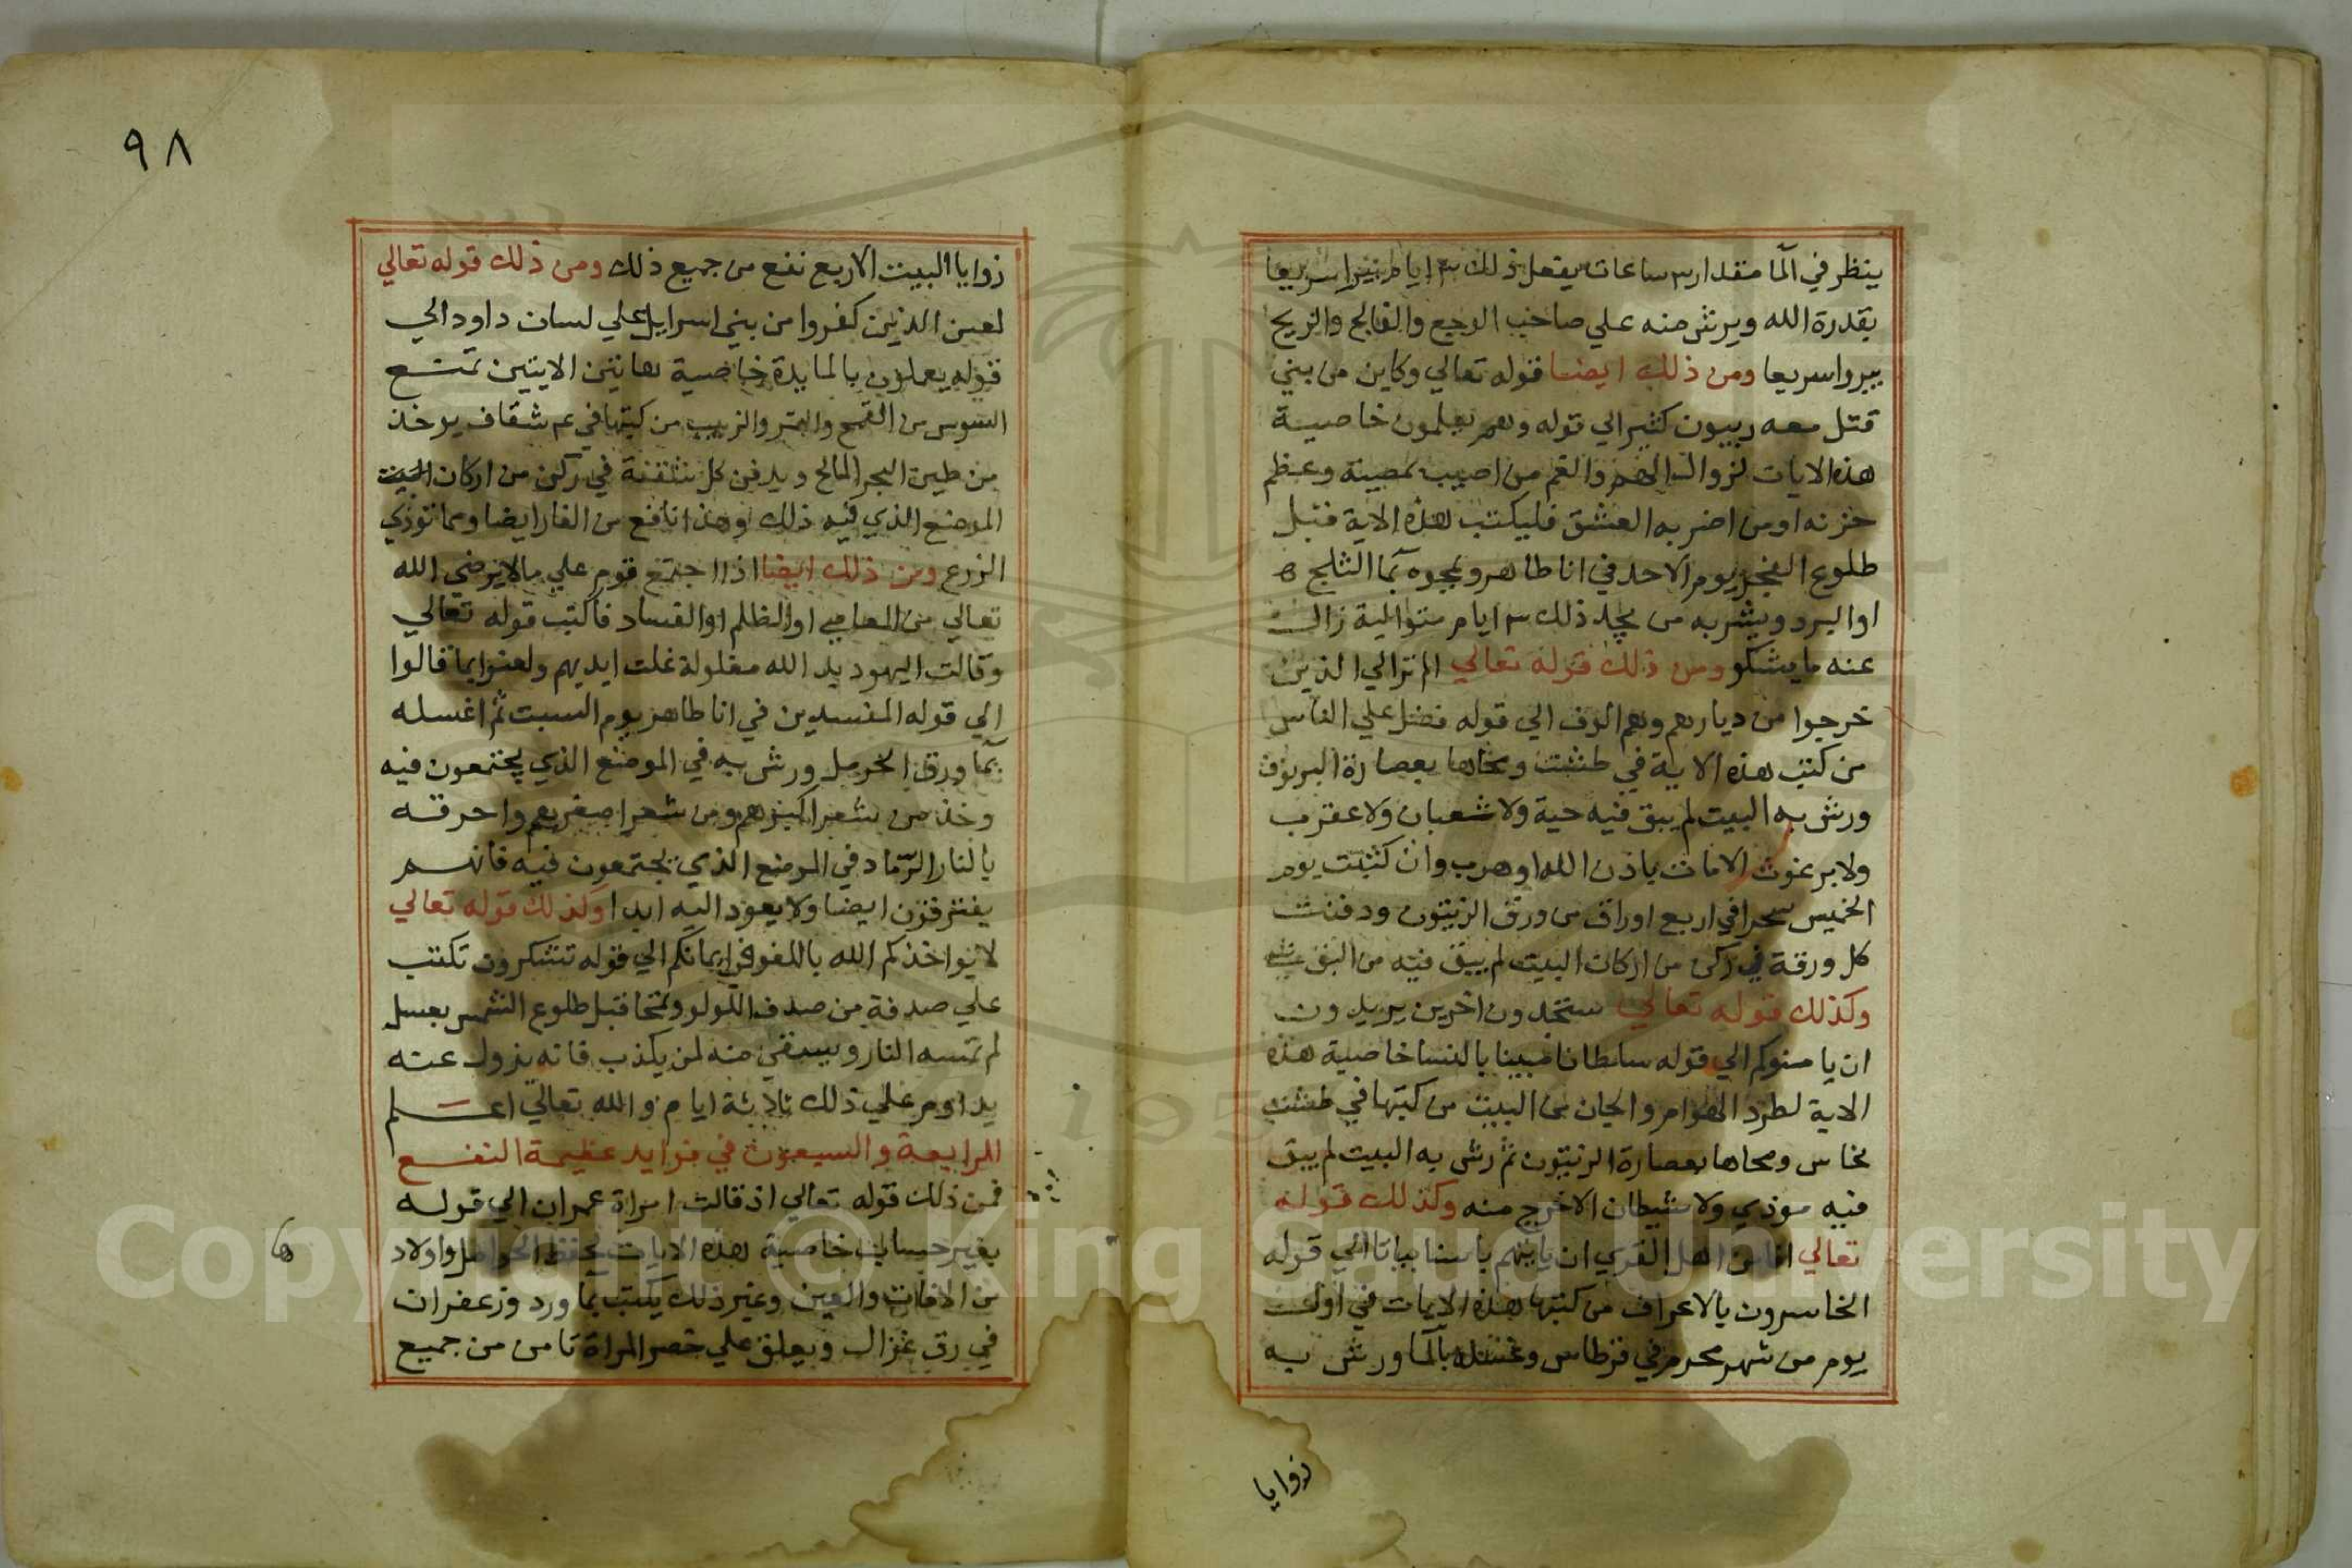 ينظر في المآ مقدار ٣ ساعات يفعل ذلك ٣ ايام يبرا سريعا
بقدرة الله ويرش منه علي صاحب الوجع والفالج والريح
يبروا سريعا ومن ذلك ايضا قوله تعالي وكاين من بني
قتل معه ربيون كثير الي قوله وهم يعلمون خاصية
هذه الايات لزوال الهم والغم من اصيب بمصيبة وعظم
حزنه او من اضر به العشق فليكتب هذه الاية قبل
طلوع الفجر يوم الاحد في انا طاهر ويمحوه بمآ الثلج
او البرد ويشربه من يجد ذلك ٣ ايام متوالية زال
عنه ما يشكو ومن ذلك قوله تعالي الم تر الي الذين
خرجوا من ديارهم وهم الوف الي قوله فضل علي الناس
من كتب هذه الاية في طشت ومحاها بعصارة
ورش به البيت لم يبق فيه حية ولا شعبان ولا عقرب
ولا برغوث الا مات باذن الله او هرب وان كتبت يوم
الخميس سحرا في اربع اوراق من ورق الزيتون ودفنت
كل ورقة في ركن من اركان البيت لم يبق فيه من البق شي
وكذلك قوله تعالي ستجدون اخرين يريدون
ان يامنوكم الي قوله سلطانا مبينا بالنسا خاصية هذه
الاية لطرد الهوام والجان من البيت من كتبها في طشت
نحاس ومحاها بعصارة الزيتون ثم رش به البيت لم يبق
فيه موذي ولا شيطان الا خرج منه وكذلك قوله
تعالي افامن اهل القري ان ياتيهم باسنا بياتا الي قوله
الخاسرون بالاعراف من كتبها هذه الايات في اول
يوم من شهر محرم في قرطاس وغسله بالمآ ورش به
زوايا
٩٨
زوايا البيت الاربع نفع من جميع ذلك ومن ذلك قوله تعالي
لعن الذين كفروا من بني اسرايل علي لسان داود الي
قوله يعملون بالمايدة خاصية هاتين الايتين تمنع
السوس من القمح والتمر والزبيب من كتبها في ٤ شقاف يوخذ
من طين البحر المالح ويدفن كل شقفة في ركن من اركان البيت
الموضع الذي فيه ذلك وهذا نافع من الفار ايضا ومما توذي
الزرع ومن ذلك ايضا اذا اجتمع قوم علي مالا يرضي الله
تعالي من المعاصي او الظلم او الفساد فاكتب قوله تعالي
وقالت اليهود يد الله مغلولة غلت ايديهم ولعنوا بما قالوا
الي قوله المفسدين في انا طاهر يوم السبت ثم اغسله
بمآ ورق الحرمل ورش به في الموضع الذي يجتمعون فيه
وخذ من شعر اكبرهم ومن شعر اصغرهم واحرقه
بالنار الرماد في الموضع الذي يجتمعون فيه فانهم
يفترقون ايضا ولا يعود اليه ابدا وكذلك قوله تعالي
لا يواخذكم الله باللغو في ايمانكم الي قوله تشكرون تكتب
علي صدفة من صدف اللولو وتمحا قبل طلوع الشمس بعسل
لم تمسه النار ويسقي منه لمن يكذب فانه يزول عنه
يداوم علي ذلك ثلاثة ايام والله تعالي اعلم
الرابعة والسبعون في فوايد عظيمة النفع
فمن ذلك قوله تعالي اذ قالت امراة عمران الي قوله
بغير حساب خاصية هذه الايات لحفظ الحوامل واولاد
ها
من الافات والعين وغير ذلك يكتب بما ورد وزعفران
في رق غزال ويعلق علي خصر المراة تامن من جميع
Copyright © King Saud University
1957